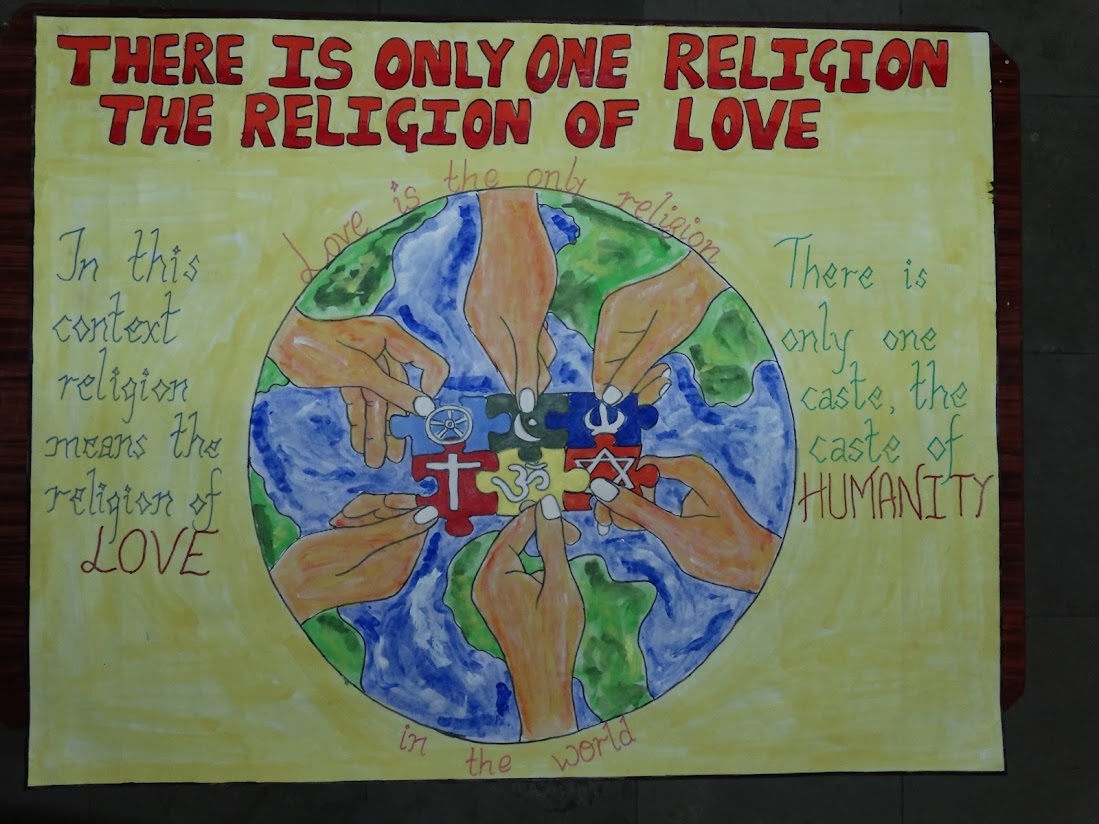 THERE IS ONLY ONE RELIGION
THE RELIGION OF LOVE
Love is the only religion
In this
context
religion
means the
religion of
LOVE
There is
only one
caste, the
caste of
HUMANITY
ॐ
in the world